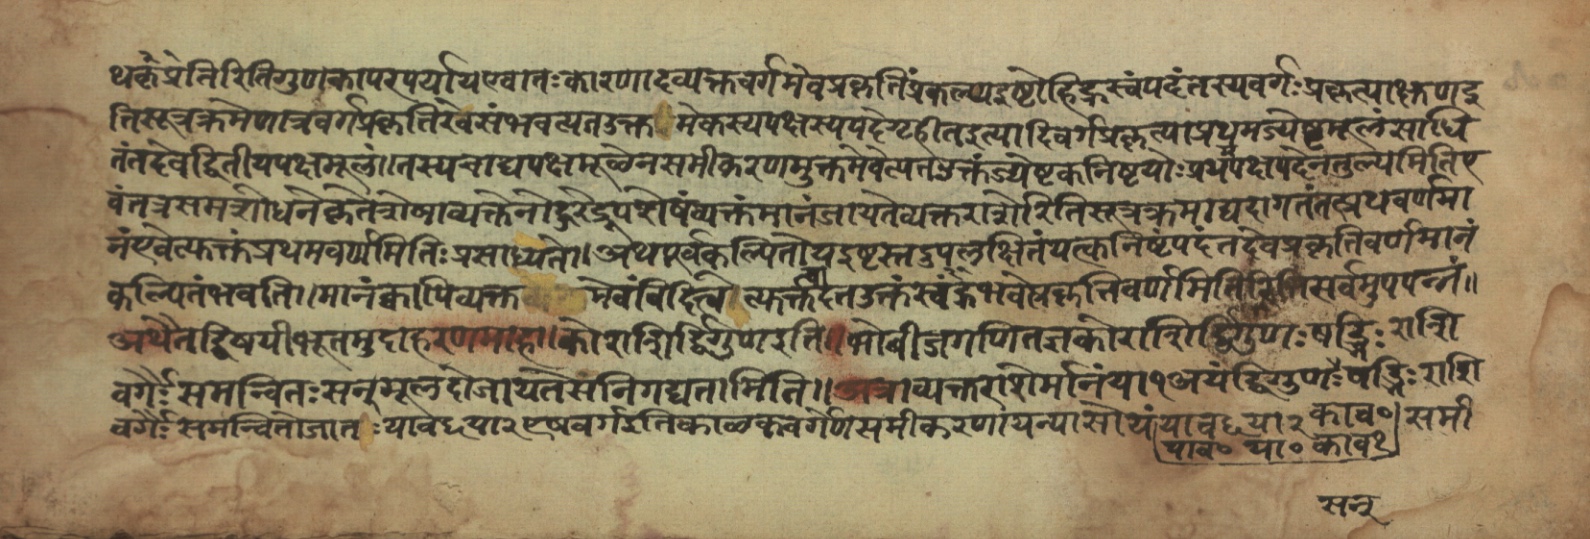 थक्प्रेतिरितिगुणकापरपर्यायएवातःकारणादव्यक्तवर्गमेवप्रकृतिंप्रकल्प्यइष्टोह्रिह्रस्वंपदंतस्यवर्गःप्रकृत्याक्षुणइ
तिसूत्रक्रमेणात्रवर्गप्रकृतिरेवसंभवत्यतउक्त मेकस्यपक्षस्यपदेगृहीतइत्यादिवर्गप्रकृत्याप्रथमज्येष्ठमूलंसाधि
तंतदेवद्वितीयपक्षमूलं।तस्यचाद्यपक्षमूळेनसमीकरणमुक्तमेवेत्यतउक्तंज्येष्टकनिष्टयोःप्रथमपक्षपदेनतुल्यमितिए
वंतत्रसमशोधनेकृतेशेषाव्यक्तेनोद्धरेद्रूपशेषंव्यक्तंमानंजायतेव्यक्तराशेरितिसूत्रक्रमाद्यदागतंतत्प्रथवर्णमा
नंएवेत्यक्तंप्रथमवर्णमितिःप्रसाध्येते।अथपूर्वकल्पितोयइष्टस्तदुपलक्षितंयत्कनिष्टंपदंतदेवप्रकृतिवर्णमानं
कल्पितंभवति।।मानंक्वापिव्यक्त मेवंविदित्वे त्यक्तंत्वादतउक्तंस्वंह्रंभवेत्प्रकृतिवर्णमितिरितिसर्वमुपपन्नं॥
अथैतद्विषयीभूतमुदाहरणमाह।।कोराशिर्द्विगुणइति।।भोबीजगणितज्ञकोराशिर्द्विगुणःषड्भिःराशि
वर्गैःसमन्वितःसन्मूलदोजायतेसनिगद्यतामिति॥अत्राव्यक्तराशेर्मानंया१अयंद्विगुणःषड्भिःराशि
वर्गैःसमन्वितोजातःयाव६या२एषवर्गइतिकाळकवर्गेणसमीकरणायन्यासोयंयाव६या२काव०।समी
याव०या०काव१
सन्